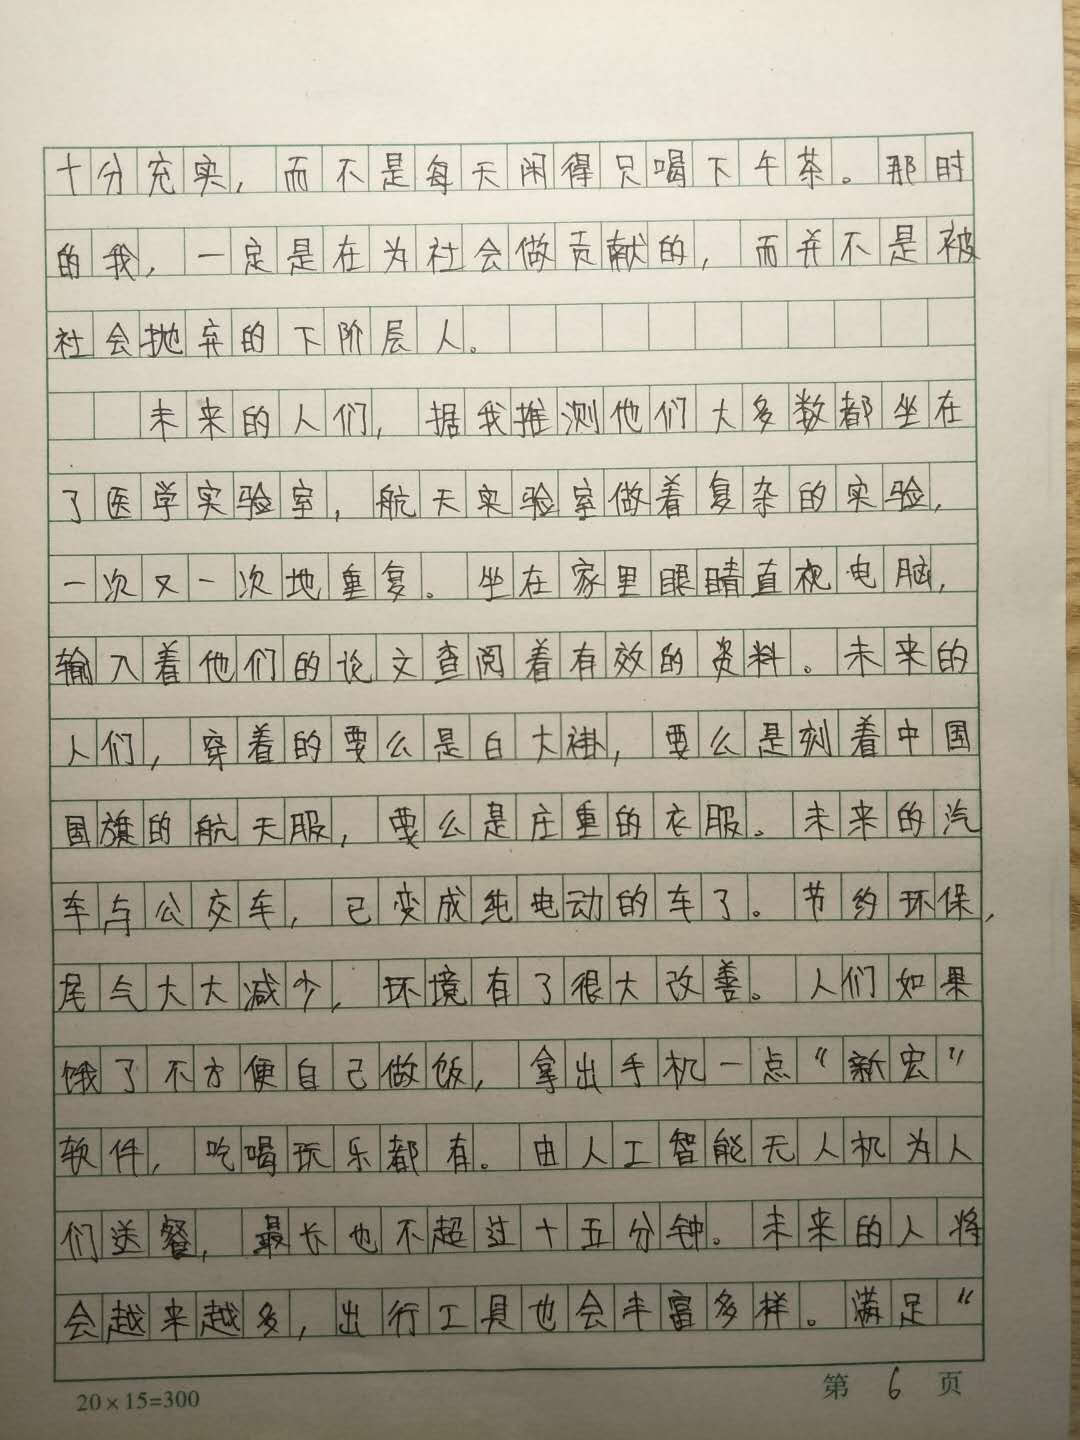 十分充实，而不是每天闲得只喝下午茶。那时
的我，一定是在为社会做贡献的，而并不是被
社会抛弃的下阶层人。
未来的人们，据我推测他们大多数都坐在
了医学实验室，航天实验室做着复杂的实验，
一次又一次地重复。坐在家里眼睛直视电脑，
输入着他们的论文查阅着有效的资料。未来的
人们，穿着的要么是白大褂，要么是刻着中国
国旗的航天服，要么是庄重的衣服。未来的汽
车与公交车，已变成纯电动的车了。节约环保，
尾气大大减少，环境有了很大改善。人们如果
饿了不方便自己做饭，拿出手机一点“新宏”
软件，吃喝玩乐都有。由人工智能无人机为人
们送餐，最长也不超过十五分钟。未来的人将
会越来越多，出行工具也会丰富多样。满足“
20×15=300
第 6 页